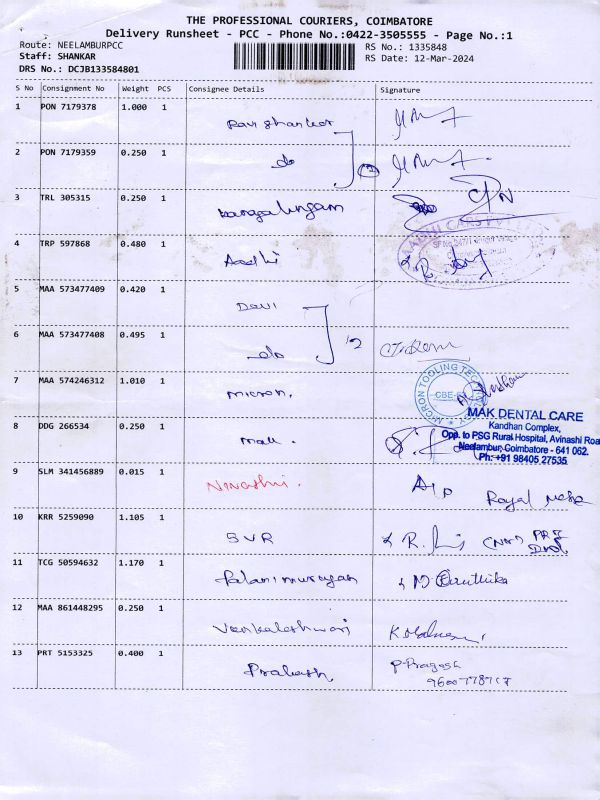 THE PROFESSIONAL COURIERS, COIMBATORE
Delivery Runsheet - PCC - Phone No.:0422-3505555 - Page No.:1
Route: NEELAMBURPCC
RS No.: 1335848
Staff: SHANKAR
RS Date: 12-Mar-2024
DRS No.: DCJB133584801
S No Consignment No Weight PCS Consignee Details Signature
1 PON 7179378 1.000 1 Ravi Shankar
2 PON 7179359 0.250 1 do
3 TRL 305315 0.250 1
4 TRP 597868 0.480 1 Aadhi
5 MAA 573477409 0.420 1 Davi
6 MAA 573477408 0.495 1 do
7 MAA 574246312 1.010 1 micron.
MICRON TOOLING
CBE
MAK DENTAL CARE
Kandhan Complex,
Opp. to PSG Rural Hospital, Avinashi Roa
Neelambur, Coimbatore - 641 062.
Ph: +91 98405 27535
8 DDG 266534 0.250 1
9 SLM 341456889 0.015 1 Royal
10 KRR 5259090 1.105 1 SVR
11 TCG 50594632 1.170 1 Palanimurugan
12 MAA 861448295 0.250 1 Venkaleshwari
13 PRT 5153325 0.400 1 Prakash P-Pragash